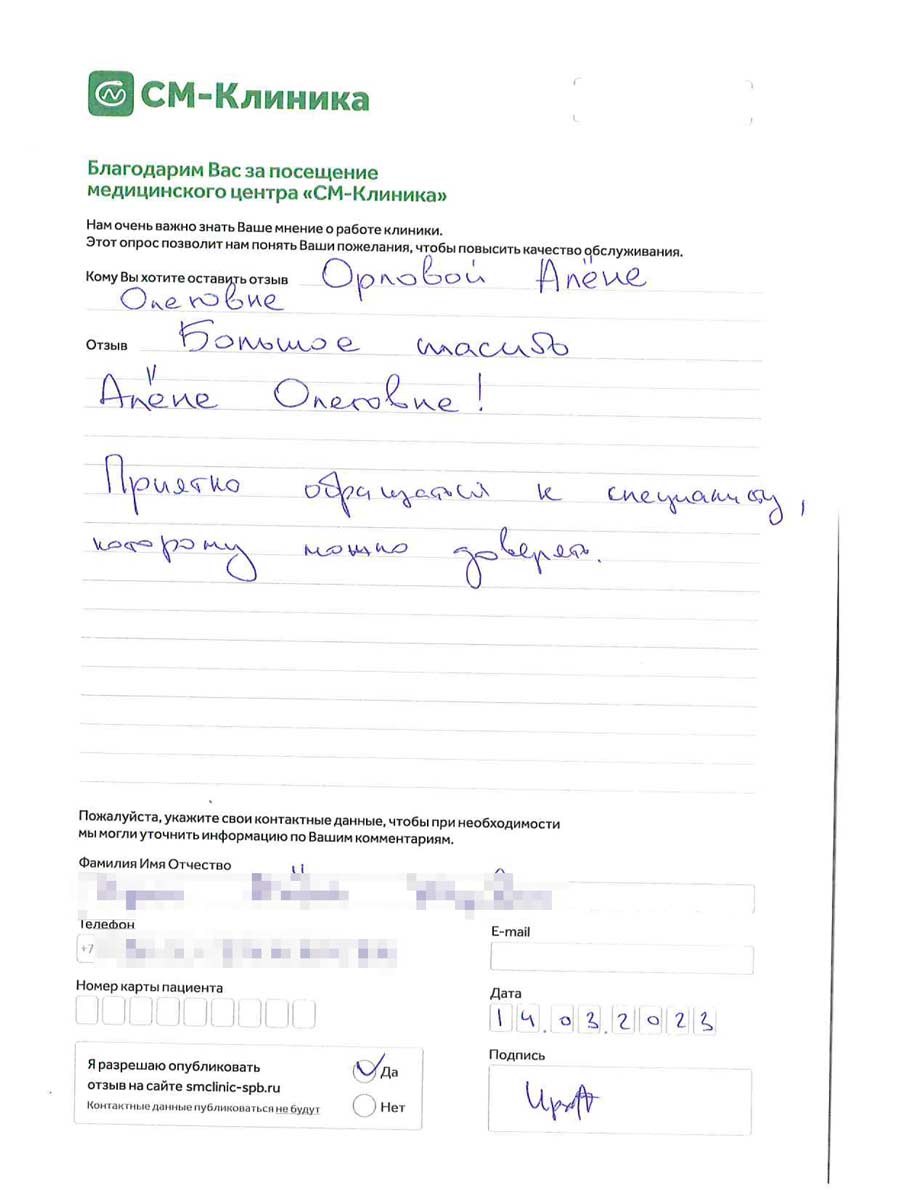 СМ-Клиника
Благодарим Вас за посещение
медицинского центра «СМ-Клиника»
Нам очень важно знать Ваше мнение о работе клиники.
Этот опрос позволит нам понять Ваши пожелания, чтобы повысить качество обслуживания.
Кому Вы хотите оставить отзыв Орловой Алёне
Олеговне
Отзыв Большое спасибо
Алёне Олеговне!
Приятно обращаться к специалисту,
которому можно доверять.
Пожалуйста, укажите свои контактные данные, чтобы при необходимости
мы могли уточнить информацию по Вашим комментариям.
Фамилия Имя Отчество
Телефон
+7
E-mail
Номер карты пациента
Дата
14.03.2023
Я разрешаю опубликовать
отзыв на сайте smclinic-spb.ru
Контактные данные публиковаться не будут
Да
Нет
Подпись